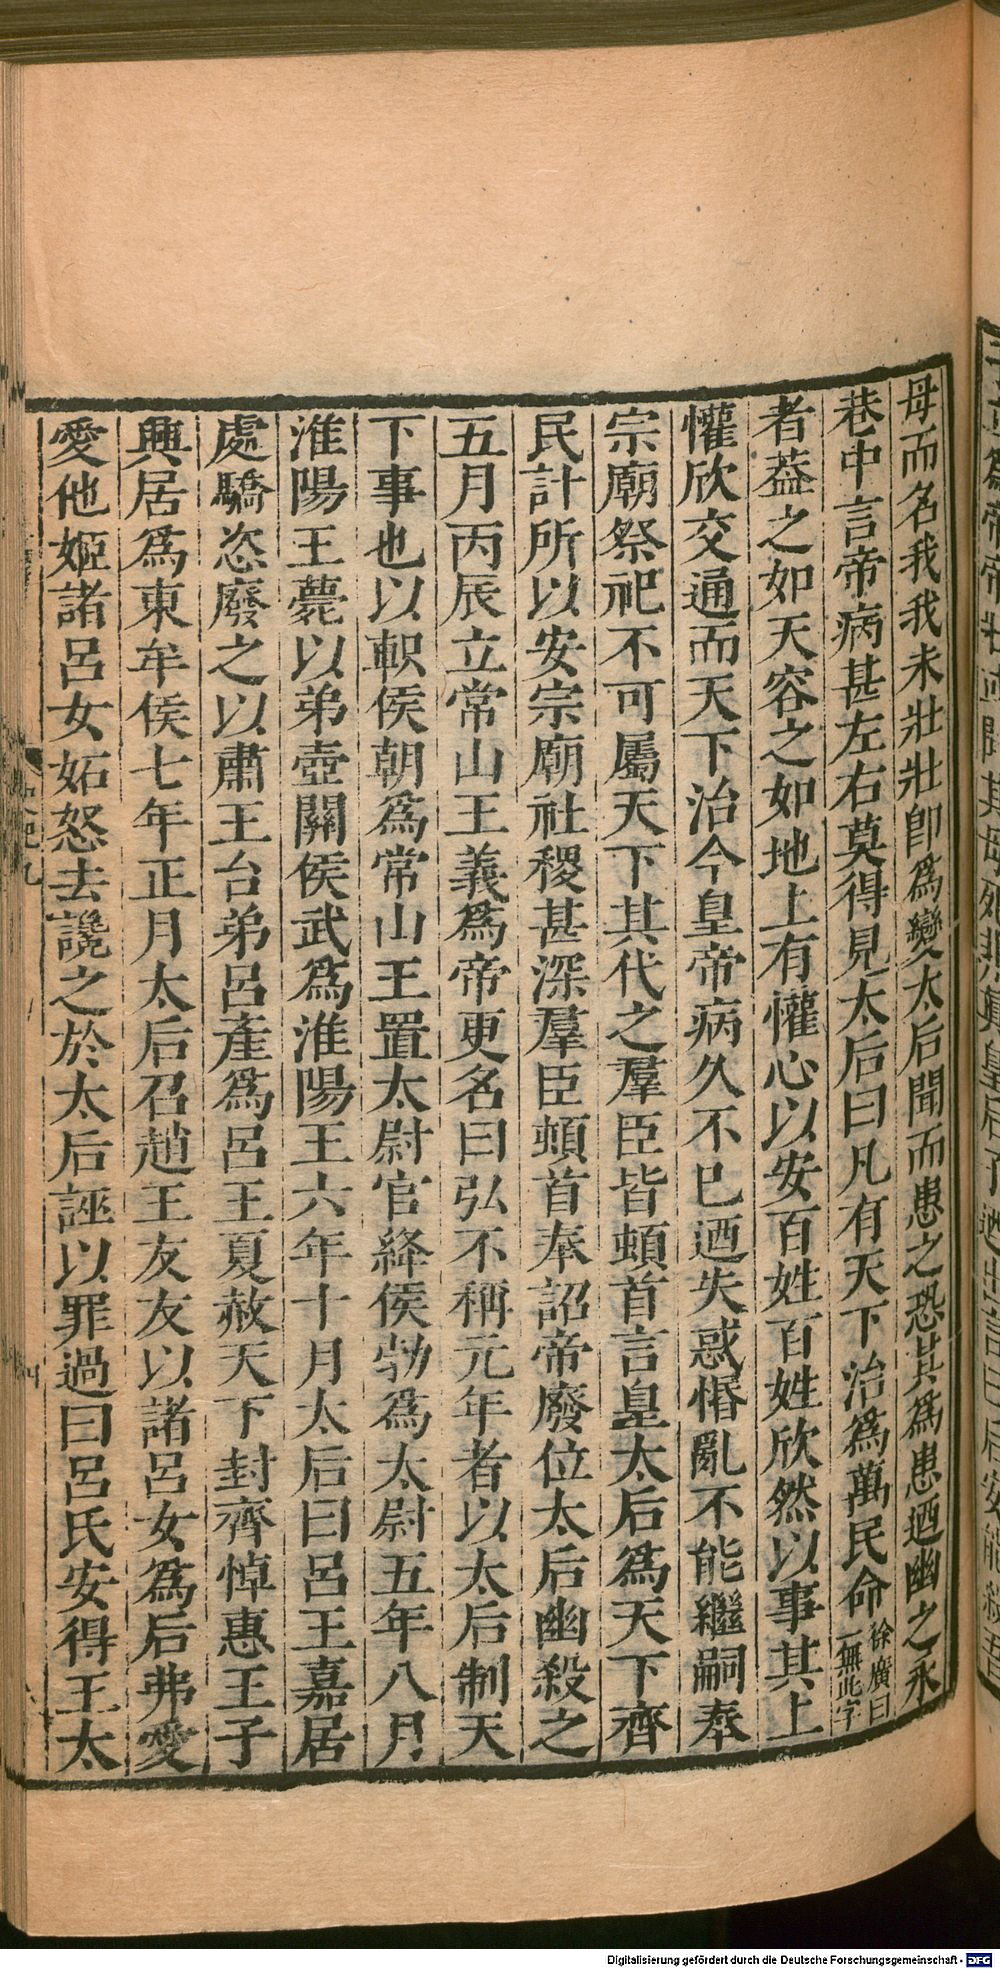 母而名我我未壯壯卽爲變太后聞而患之恐其爲患迺幽之永
巷中言帝病甚左右莫得見太后曰凡有天下治爲萬民命徐廣曰一無此字
者葢之如天容之如地上有懽心以安百姓百姓欣然以事其上
懽欣交通而天下治今皇帝病久不已迺失惑惛亂不能繼嗣奉
宗廟祭祀不可屬天下其代之羣臣皆頓首言皇太后爲天下齊
民計所以安宗廟社稷甚深羣臣頓首奉詔帝廢位太后幽殺之
五月丙辰立常山王義爲帝更名曰弘不稱元年者以太后制天
下事也以軹侯朝爲常山王置太尉官絳侯勃爲太尉五年八月
淮陽王薨以弟壺關侯武爲淮陽王六年十月太后曰呂王嘉居
處驕恣廢之以肅王台弟呂產爲呂王夏赦天下封齊悼惠王子
興居爲東牟侯七年正月太后召趙王友友以諸呂女爲后弗愛
愛他姬諸呂女妬怒去讒之於太后誣以罪過曰呂氏安得王太
Digitalisierung gefördert durch die Deutsche Forschungsgemeinschaft - DFG